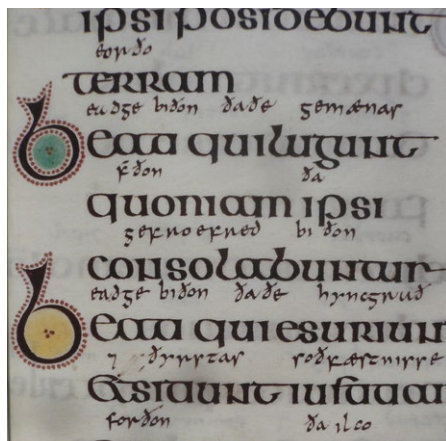 ipsi posidebunt
eorðo
terram
eadge biðon ðaðe gemænas
Beati qui lugunt
f̄ ðon ða
quoniam ipsi
gefroefred bi ðon
consolabuntur
eadge biðon ðaðe hyncgrað
Beati qui esuriun
⁊ ðyrstas soðfæstnisse
& sitiunt iustitia
forðon ða ilco